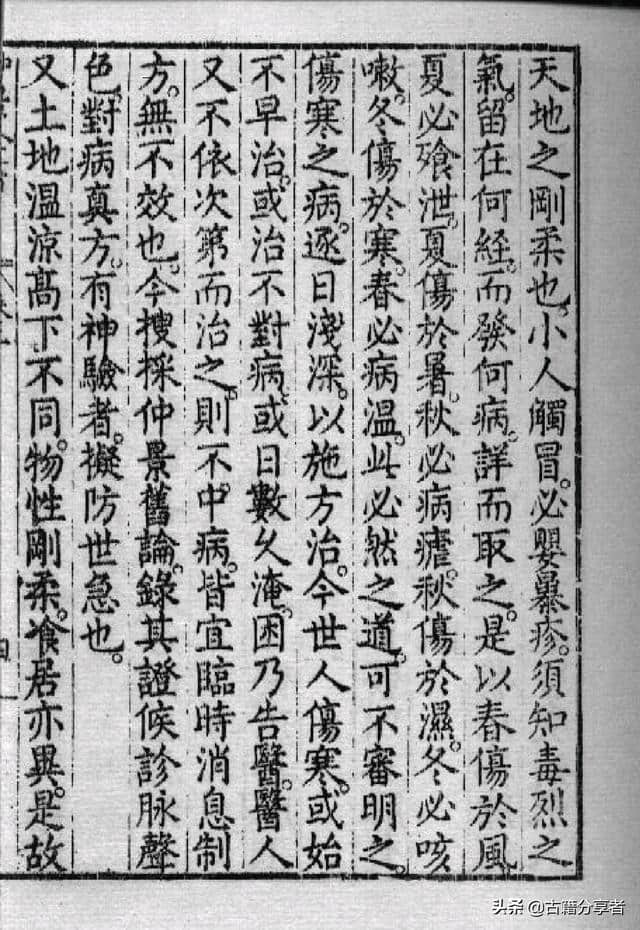 天地之剛柔也。小人觸冒。必嬰暴疹。須知毒烈之
氣。留在何經。而發何病。詳而取之。是以春傷於風
夏必飧泄。夏傷於暑。秋必病瘧。秋傷於濕。冬必咳
嗽。冬傷於寒。春必病溫。此必然之道。可不審明之。
傷寒之病。逐日淺深。以施方治。今世人傷寒。或始
不早治。或治不對病。或日數久淹。困乃告醫。醫人
又不依次第而治之。則不中病。皆宜臨時消息制
方。無不效也。今搜採仲景舊論。錄其證候診脉聲
色。對病真方。有神驗者。擬防世急也。
又土地溫涼高下不同。物性剛柔。飡居亦異。是故
头条 @古籍分享者